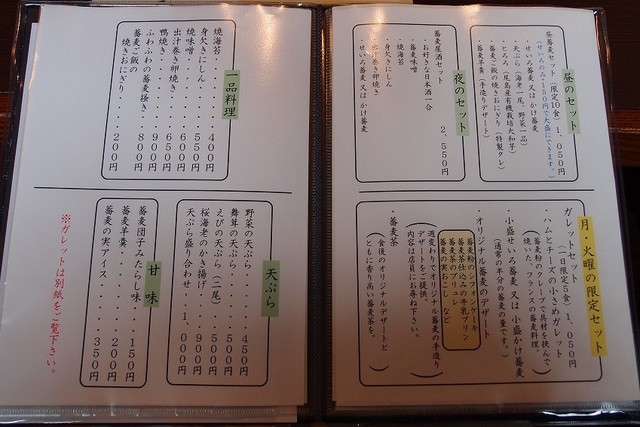 昼のセット
蕎麦昼セット(限定10食) 1,050円
(せいろのみ+150円で大盛にできます。)
・せいろ蕎麦又はかけ蕎麦
・天ぷら(海老一尾、野菜一品)
・とろろ(尾島産有機栽培大和芋)
・蕎麦ご飯の焼きおにぎり(特製タレ)
・蕎麦羊羹(手造りデザート)
夜のセット
蕎麦屋酒セット 2,550円
・お好きな日本酒一合
・蕎麦味噌
・焼海苔
・出汁巻き卵焼き
・せいろ蕎麦 又は かけ蕎麦
月・火曜の限定セット
ガレットセット 1,050円
(一日限定5食)
・ハムとチーズの小さめガレット
(蕎麦粉のクレープで具材を挟んで
焼いた、フランスの蕎麦料理。)
・小盛せいろ蕎麦 又は 小盛かけ蕎麦
(通常の半分の蕎麦の量です。)
・オリジナル蕎麦のデザート
蕎麦粉のシフォンケーキ
蕎麦茶仕込みの牛乳プリン
蕎麦茶のブリュレ
蕎麦の実おこし など
(週変わりでオリジナル蕎麦の手造り
デザートをご提供。
内容は店員にお尋ね下さい。)
・蕎麦茶
(食後のオリジナルデザートと
ともに香り高い蕎麦茶を。)
一品料理
焼海苔 400円
身欠きにしん 550円
焼味噌 450円
出汁巻き卵焼き 650円
鴨焼き 900円
ふわふわの蕎麦掻き 800円
蕎麦ご飯の
焼きおにぎり 200円
天ぷら
野菜の天ぷら 450円
舞茸の天ぷら 500円
えびの天ぷら(二尾) 500円
桜海老のかき揚げ 900円
天ぷら盛り合わせ 1,000円
甘味
蕎麦団子みたらし味 150円
蕎麦羊羹 200円
蕎麦の実アイス 350円
※ガレットは別紙をご覧下さい。